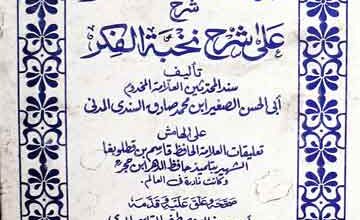 شرح
على شرح نخبة الفكر
تأليف
سند المحدثين العلامة المخدوم
أبي الحسن الصغير ابن محمد صادق السندي المدني
على الهامش
تعليقات العلامة الحافظ قاسم بن قطلوبغا
الشهير بتلميذ حافظ الدهر ابن حجر
وكانت نادرة في العالم.
صححه وعلق عليه وقدم له